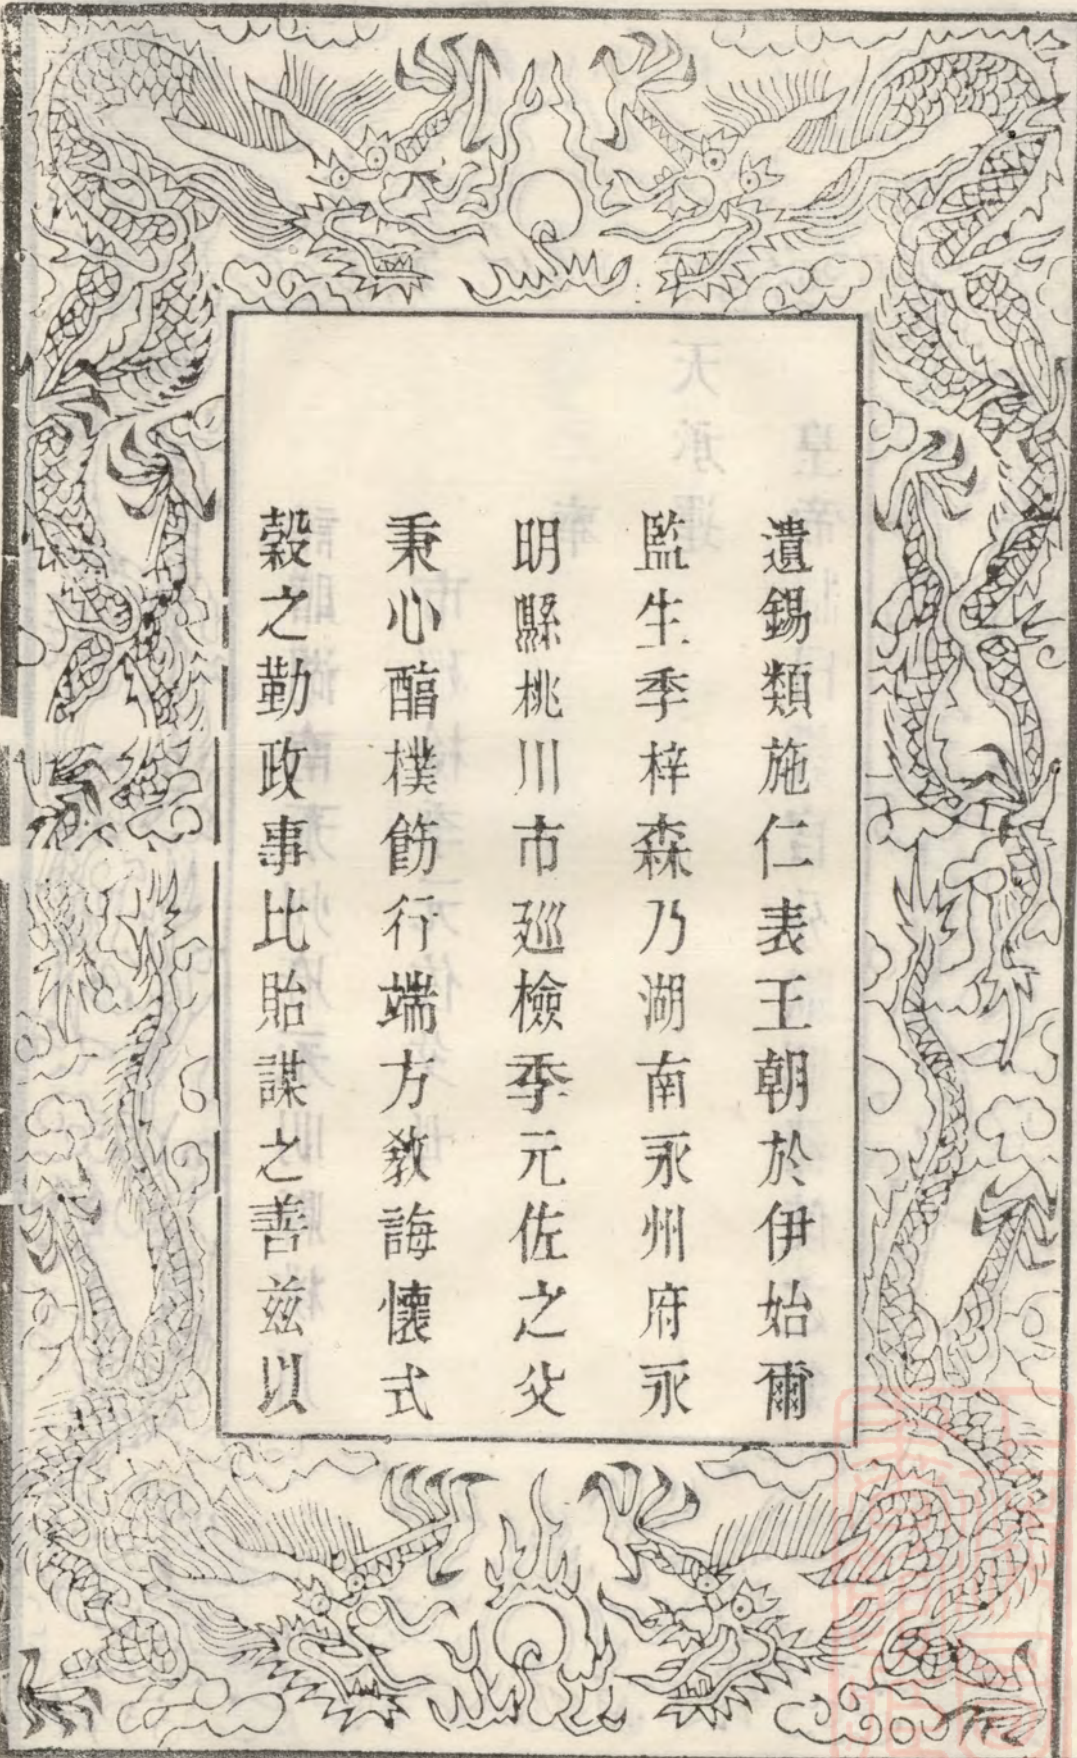 遺錫類施仁表王朝於伊始爾
監生季梓森乃湖南永州府永
明縣桃川市廵檢季元佐之父
秉心醕樸飭行端方敎誨懷式
榖之勤政事比貽謀之善兹以